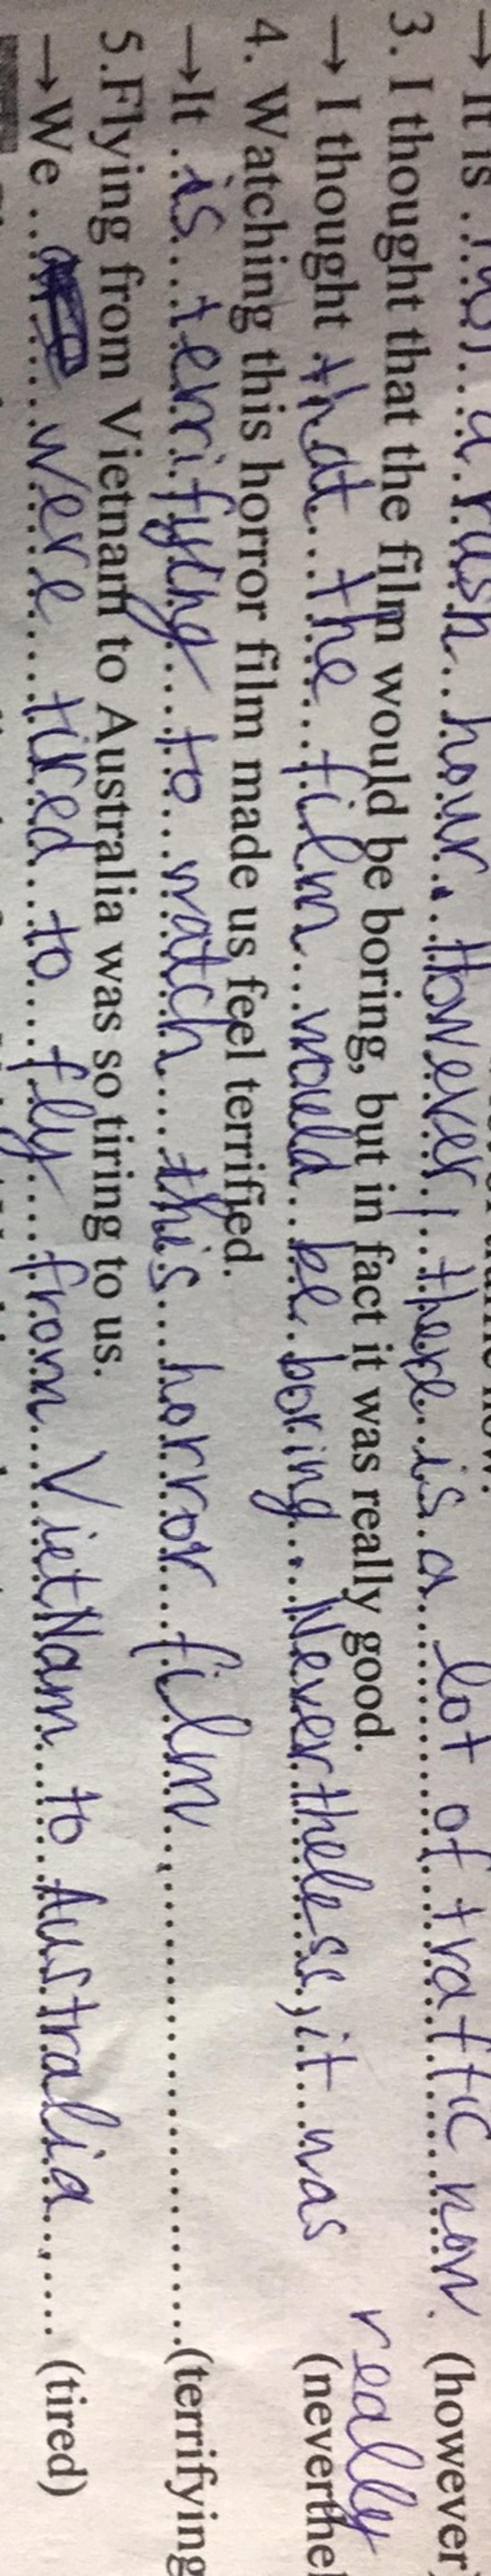 → It is not a rush hour. However, there is a lot of traffic now. (however
3. I thought that the film would be boring, but in fact it was really good.
→ I thought that the film would be boring. Nevertheless, it was really (neverthel
4. Watching this horror film made us feel terrified.
→It is terrifying to watch this horror film (terrifying
5.Flying from Vietnam to Australia was so tiring to us.
→We were tired to fly from VietNam to Australia (tired)